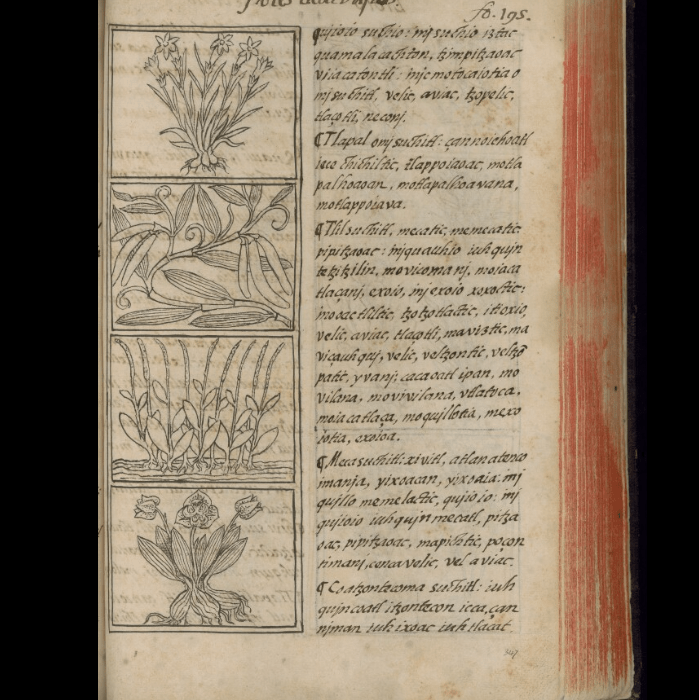 fo. 195.
qujoio suchio: inj suchio iztac
quamalacachton, tzimpitzaoac
viiacatontli: injc motocaiotia o
mj suchitl, velic, aviac, tzopelic,
tlaçotli, neconj.
¶ Tlapal omj suchitl: çan no iehoatl
ieçe chichiltic, tlappoiaoac, motla
palhoaoan, motlapalhoavana,
motlappoiava.
¶ Tlilsuchitl, mecatic, memecatic
pipitzaoac: injquauhio iuhqujn
tetzitzilin, movicomanj, moiaca
tlaçanj, exoio, inj exoio xoxoctic:
inooac tliltic, tzotzotlactic, itioxio,
velic, aviac, tlaçotli, maviztic, ma
viçauhquj, velic, veltzontic, veltzō
patic, yvanj, cacaoatl ipan, mo
vilana, movivilana, vtlatoca,
moiacatlaça, moquillotia, mexo
iotia, exoioa.
¶ Mecasuchitl: xivitl, atlan atenco
imanja, yixoacan, yixoaia: inj
quillo memelactic, qujoio: inj
qujoio iuhqujn mecatl, pitza
oac, pipitzaoac, mapichtic, poçon
timanj, çenca velic, vel aviac.
¶ Coatzontecoma suchitl: iuh
qujn coatl itzontecon icca, çan
njman iuh ixoac iuh tlacat